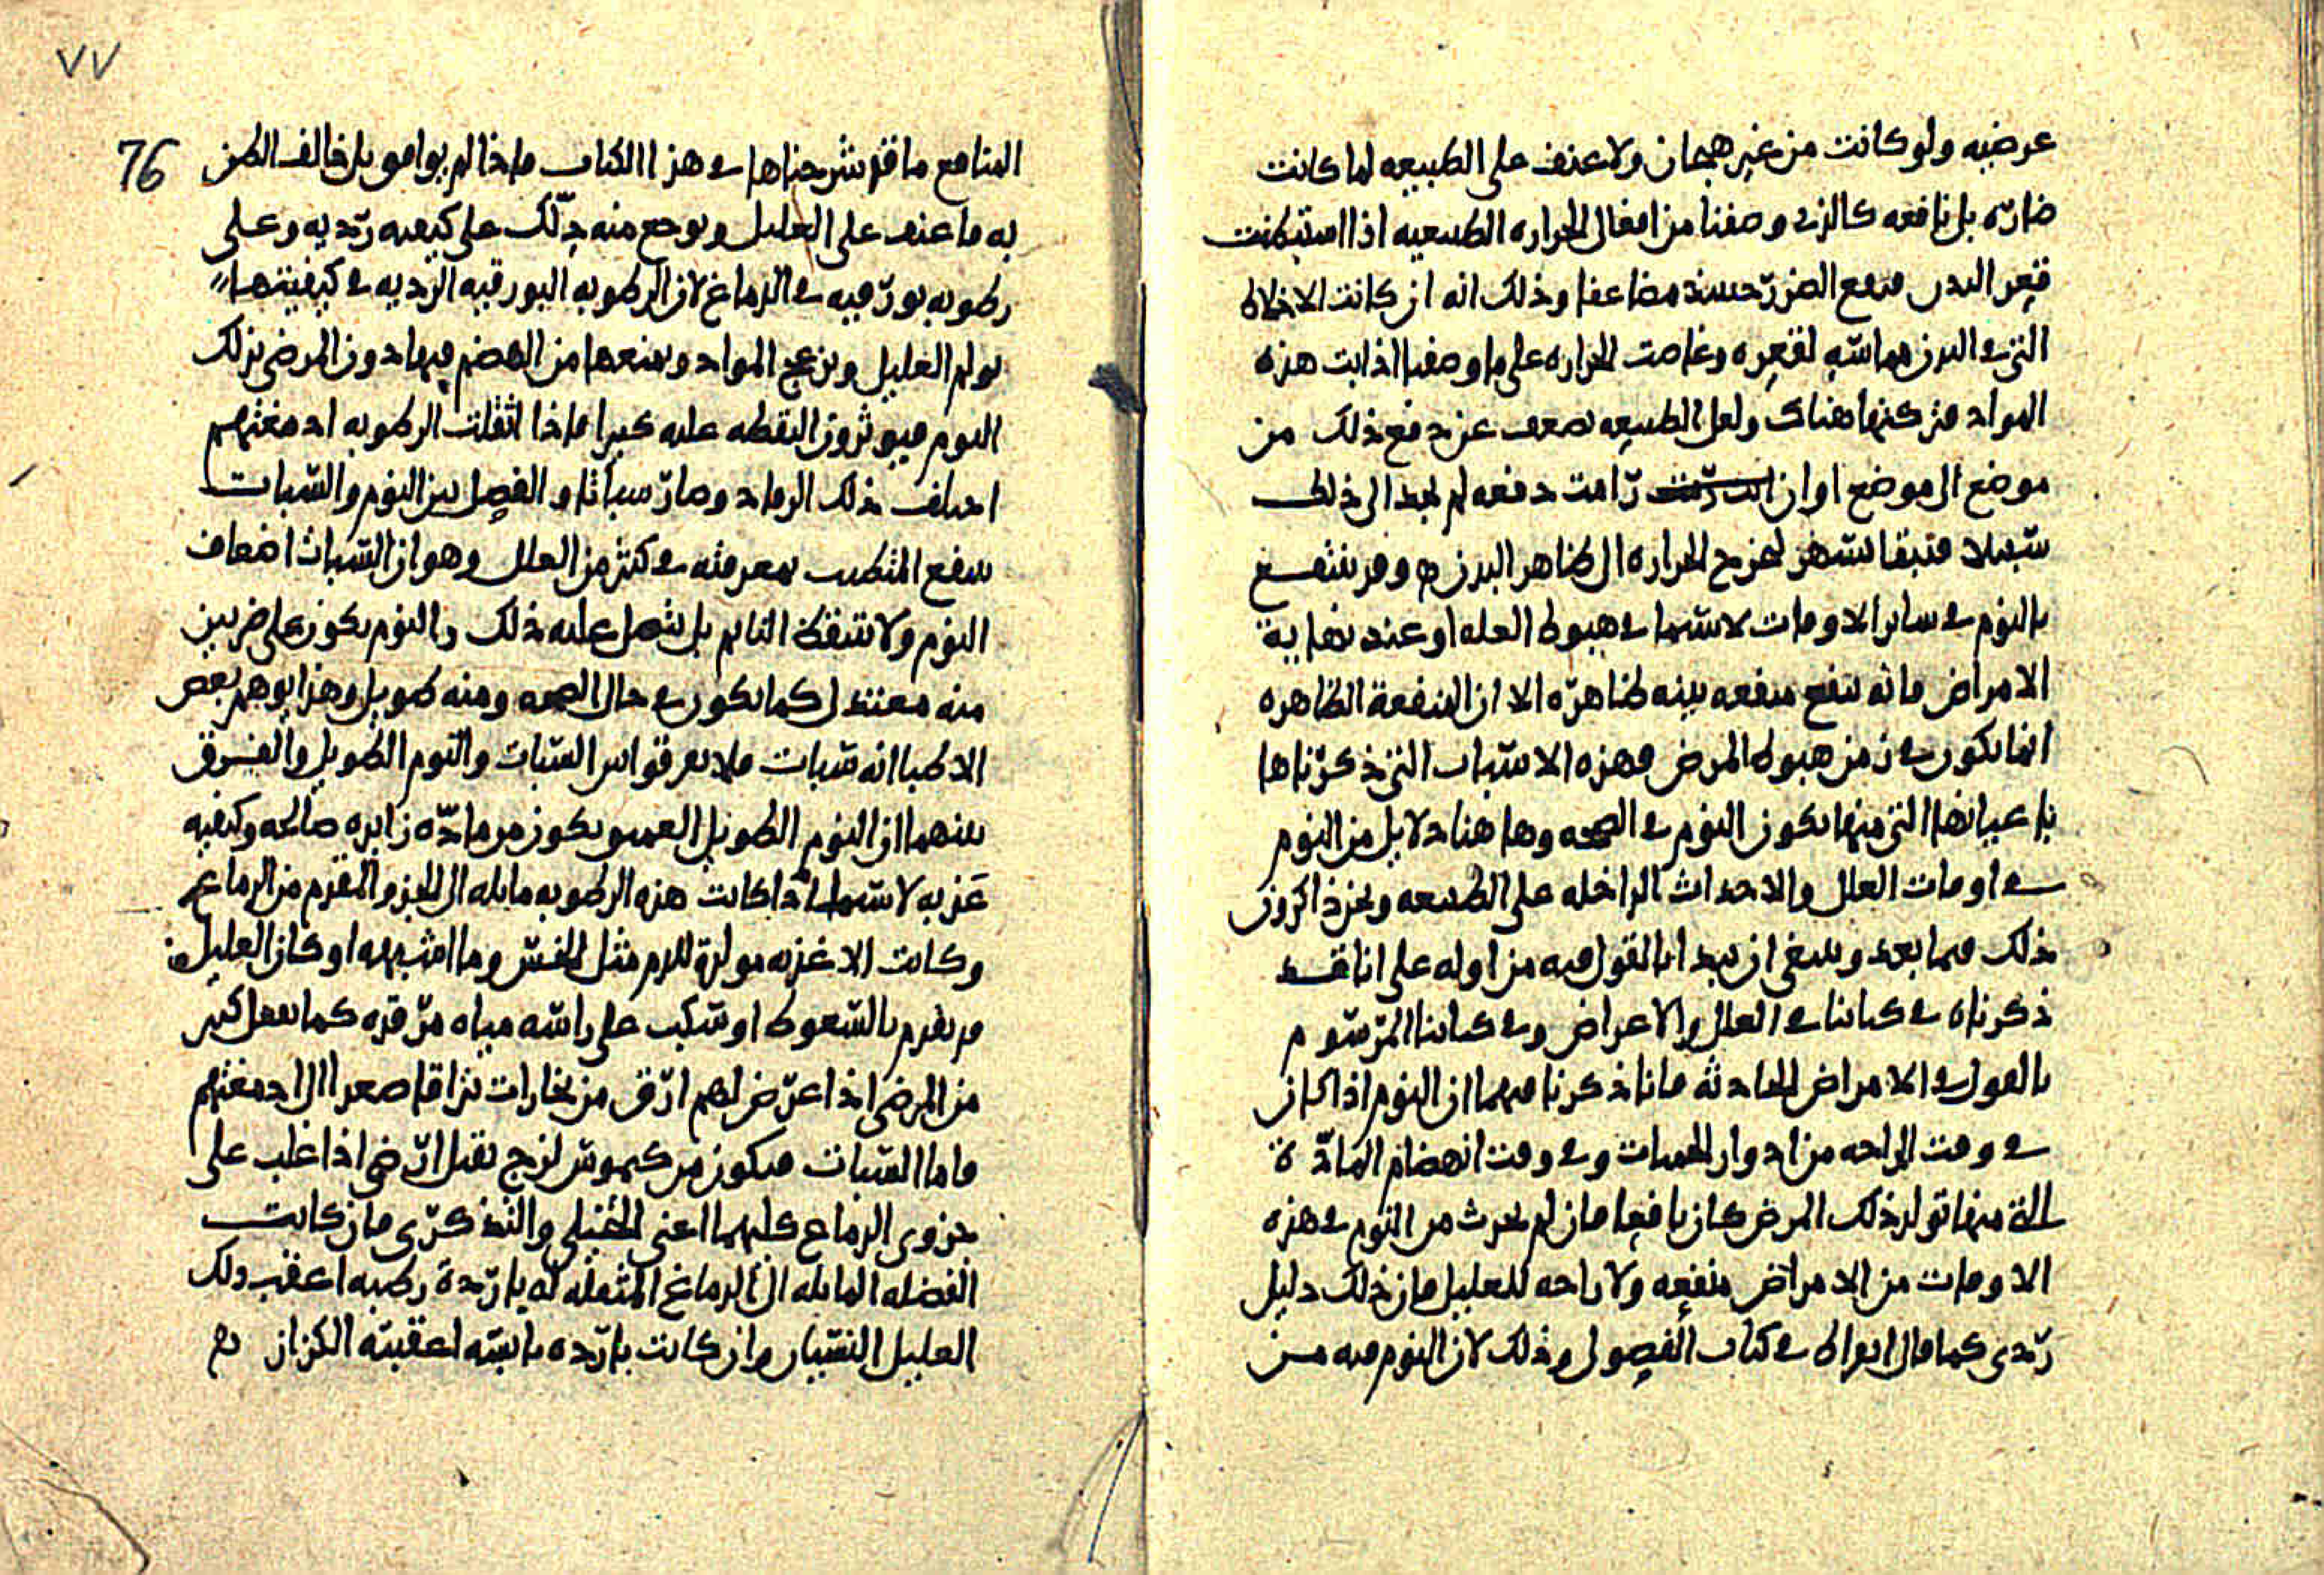 عرضيه ولو كانت من غير هيجان ولا عنف على الطبيعه لما كانت
ضارّه بل نافعه كالذى وصفنا من افعال الحراره الطبيعيه اذا استبطنت
قعر البدن فيقع الضرر حينيذ مضاعفا وذلك انه ان كانت الاخلاط
التى فى البدن لقعره وغاصت الحراره على ما وصفنا اذابت هذه
المواد هناك ولعل الطبيعه تضعف عن دفع ذلك من
موضع الى موضع اوان رامت دفعه لم تجد الى ذلك
سبيلا الحراره الى ظاهر البدن وقد ينتفع
بالنوم فى ساير الاوقات لا سيما فى هبوط العله او عند نهاية
الامراض فانه ينفع منفعه بينه ظاهره الا ان المنفعة الظاهره
انما يكون فى زمن هبوط المرض فهذه الاسباب التى ذكرناها
باعيانها التى منها يكون النوم فى الصحه وها هنا دلايل من النوم
فى اوقات العلل والاحداث الداخله على الطبيعه ونحن ذاكرون
ذلك فيما بعد وينبغى ان نبدا بالقول فيه من اوله على انا قد
ذكرناه فى كتابنا فى العلل والاعراض وفى كتابنا المرسوم
بالقول فى الامراض الحادثة فانا ذكرنا فيهما ان النوم اذا كان
فى وقت الراحه من ادوار الحميات وفى وقت انهضام المادّة
التى منها تولد ذلك المرض كان نافعا فان لم يحدث من النوم فى هذه
الاوقات من الامراض منفعه ولا راحه للعليل فان ذلك دليل
ردى كما قال ابقراط فى كتاب الفصول وذلك لان النوم فيه من
٧٧
76
المنافع ما قد شرحناها فى هذا الكتاب فاذا لم يوافق بل خالف الظن
به فاعنف على العليل وتوجع منه دلّك على كيفيه رديه وعلى
رطوبه بورقيه فى الدماغ لان الرطوبه البورقيه الرديه فى كيفيتها
تولم العليل وتزعج المواد وتمنعها من الهضم فيهاد ون المرضى بذلك
النوم فيوثرون اليقظه عليه كثيرا فاذا اثقلت الرطوبه ادمغتهم
اختلف ذلك الرقاد وصار سباتا والفصل بين النوم والسبات
ينفع المتطبب بمعرفته فى كثير من العلل وهو ان السبات اضعاف
النوم ولا يتيقظ النايم بل يثقل عليه ذلك والنوم يكون على ضربين
منه معتدل كما يكون فى حال الصحه ومنه طويل وهذا يوهم بعض
الاطبا انه سبات فلا يفرقوا بين السبات والنوم الطويل والفرق
بينهما ان النوم الطويل العميق يكون من مادّه زايده صالحه وكيفيه
عذبه لا سيما اذا كانت هذه الرطوبه مايله الى الجزو المقدم من الدماغ
وكانت الاغذيه مولدة للدم مثل الخس وما اشبهه او كان العليل
قد يقدم بالسعوط او سكب على راسه مياه مرقده كما يفعل كثير
من المرضى اذا عرض لهم ارق من بخارات ترافا صعدا الى ادمغتهم
فاما السبات فيكون من كيموس لزج ثقيل ارضى اذا غلب على
جزوى الدماغ كليهما اعنى الخيلى والتذكرى فان كانت
الفضله المايله الى الدماغ المثقله له بارده رطبه اعقب ذلك
العليل النسيان وان كانت بارده يابسه اعقبته الكزاز